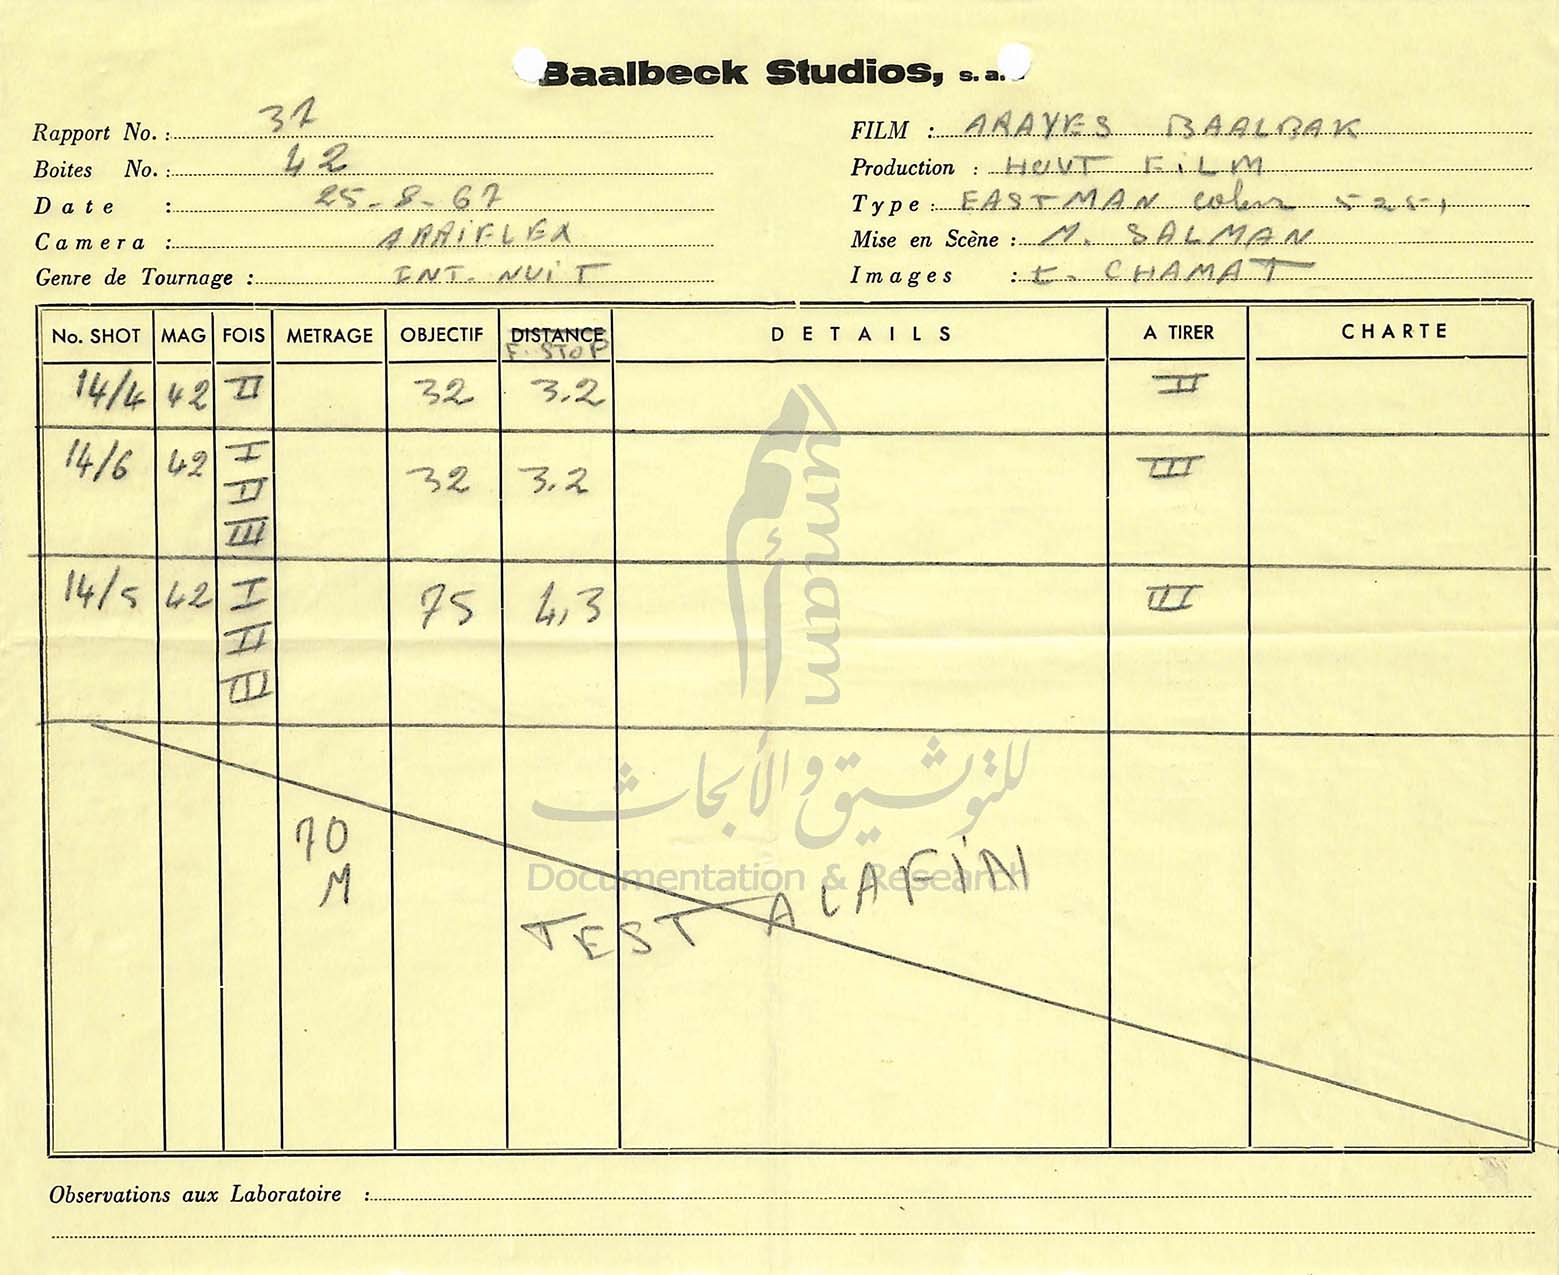 Baalbeck Studios, s. a.
Rapport No. : 37
Boites No. : 42
Date : 25-8-67
Camera : ARRIFLEX
Genre de Tournage : INT. NUIT
FILM : ARAYES BAALBAK
Production : HOUT FILM
Type : EASTMAN color 5251
Mise en Scène : M. SALMAN
Images : E. CHAMAT
No. SHOT MAG FOIS METRAGE OBJECTIF DISTANCE DETAILS A TIRER CHARTE
F. STOP
14/4 42 II 32 3.2 II
14/6 42 I 32 3.2 III
II
III
14/5 42 I 75 4,3 III
II
III
70
M
TEST A LA FIN
umam
أمم
للتوثيق والأبحاث
Documentation & Research
Observations aux Laboratoire :